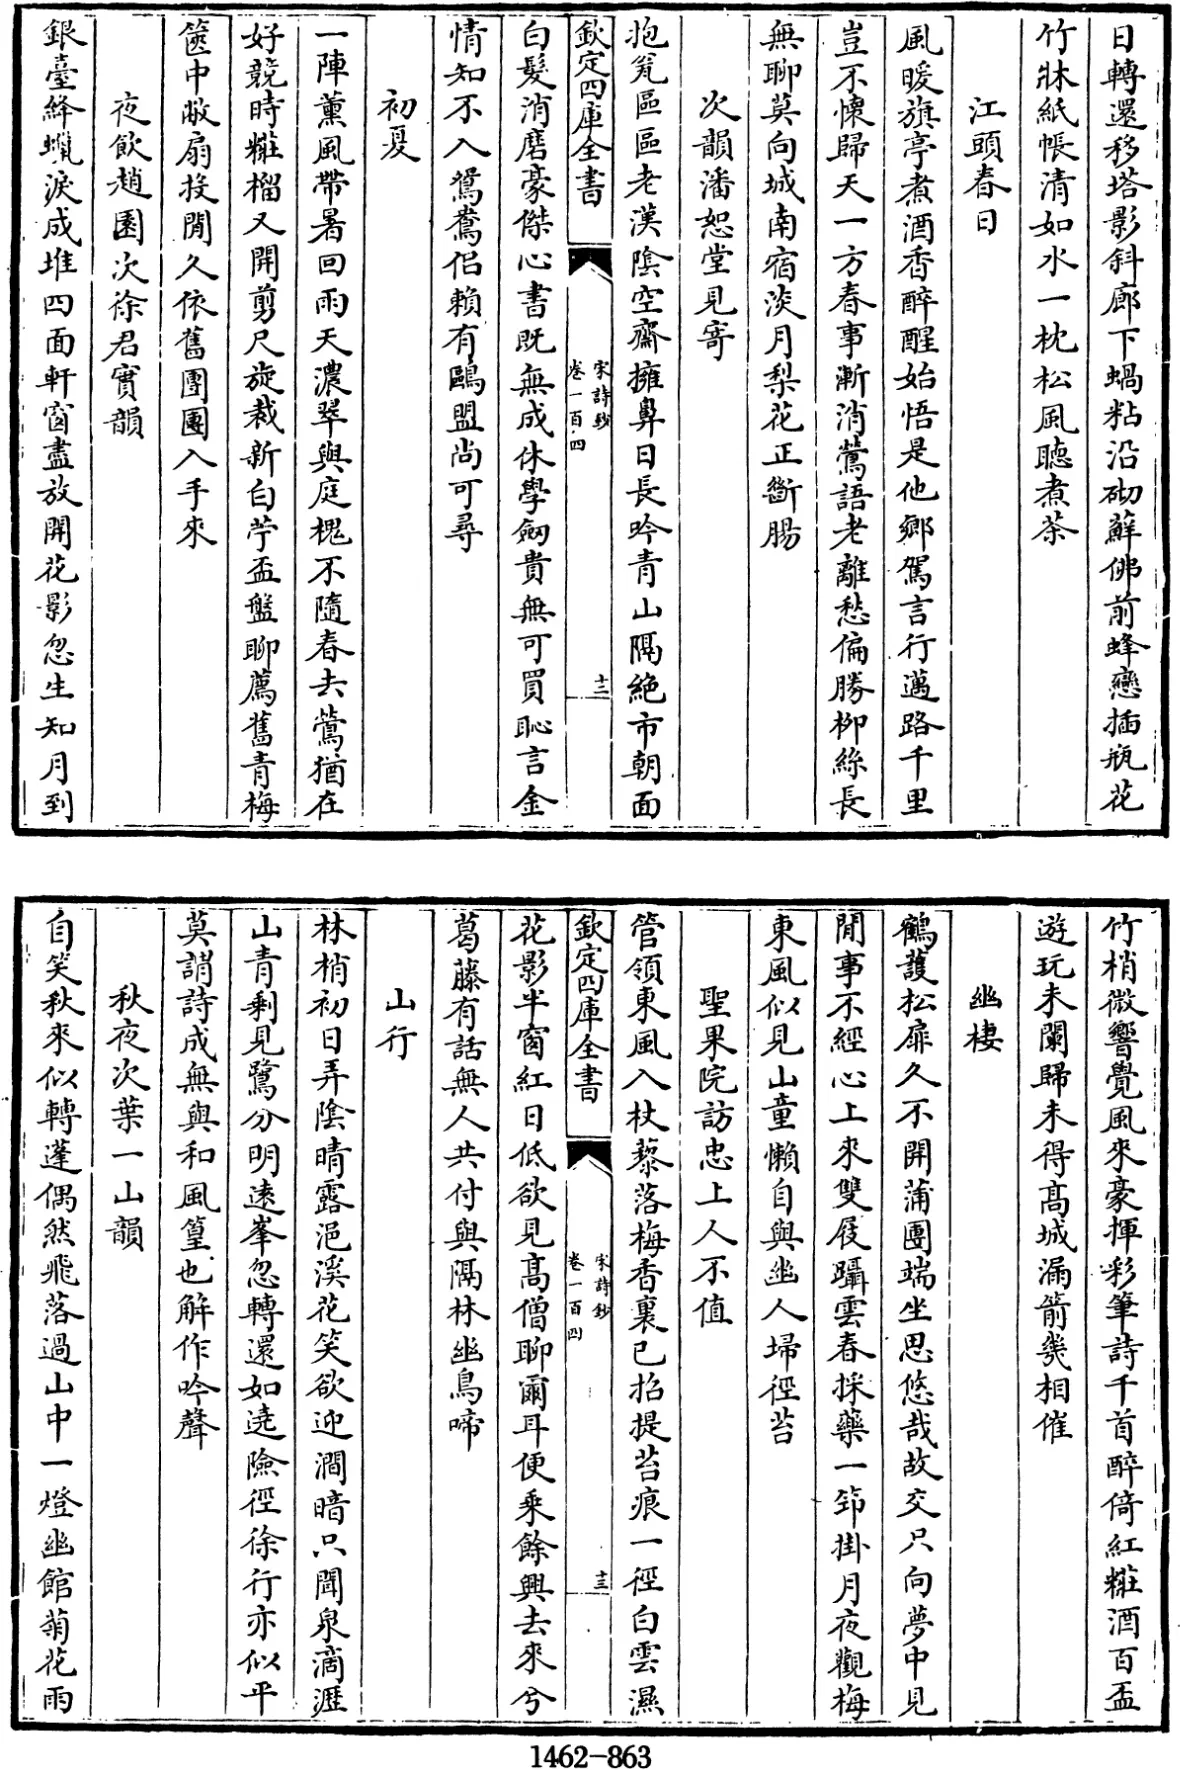 日轉還移塔影斜廊下蝸粘沿砌蘚佛前蜂戀插瓶花
竹牀紙帳清如水一枕松風聴煮茶
江頭春日
風暖旗亭煮酒香醉醒始悟是他鄉駕言行邁路千里
豈不懷歸天一方春事漸消鶯語老離愁偏勝柳絲長
無聊莫向城南宿淡月梨花正斷腸
次韻潘恕堂見寄
抱瓮區區老漢陰空齋擁鼻日長吟青山隔絶市朝面
欽定四庫全書
宋詩鈔
卷一百四
十二
白髮消磨豪傑心書既無成休學劒貴無可買恥言金
情知不入鴛鴦侣賴有鷗盟尚可尋
初夏
一陣薰風帶暑回雨天濃翠與庭槐不隨春去鶯猶在
好競時糚榴又開剪尺旋裁新白苧盃盤聊薦舊青梅
篋中敝扇投閒久依舊團團入手來
夜飲趙園次徐君寳韻
銀臺絳蠟淚成堆四面軒窗盡放開花影忽生知月到
竹梢微響覺風來豪揮彩筆詩千首醉倚紅糚酒百盃
遊玩未闌歸未得高城漏箭幾相催
幽棲
鶴護松扉久不開蒲團端坐思悠哉故交只向夢中見
閒事不經心上來雙屐躡雲春採藥一笻掛月夜觀梅
東風似見山童懶自與幽人埽徑苔
聖果院訪忠上人不值
管領東風入杖藜落梅香裏已招提苔痕一徑白雲濕
欽定四庫全書
宋詩鈔
卷一百四
十三
花影半窗紅日低欲見高僧聊爾耳便乘餘興去來兮
葛藤有話無人共付與隔林幽鳥啼
山行
林梢初日弄陰晴露浥溪花笑欲迎澗暗只聞泉滴瀝
山青剩見鷺分明遠峯忽轉還如遶險徑徐行亦似平
莫謂詩成無與和風篁也解作吟聲
秋夜次葉一山韻
自笑秋來似轉蓬偶然飛落過山中一燈幽館菊花雨
1462-863